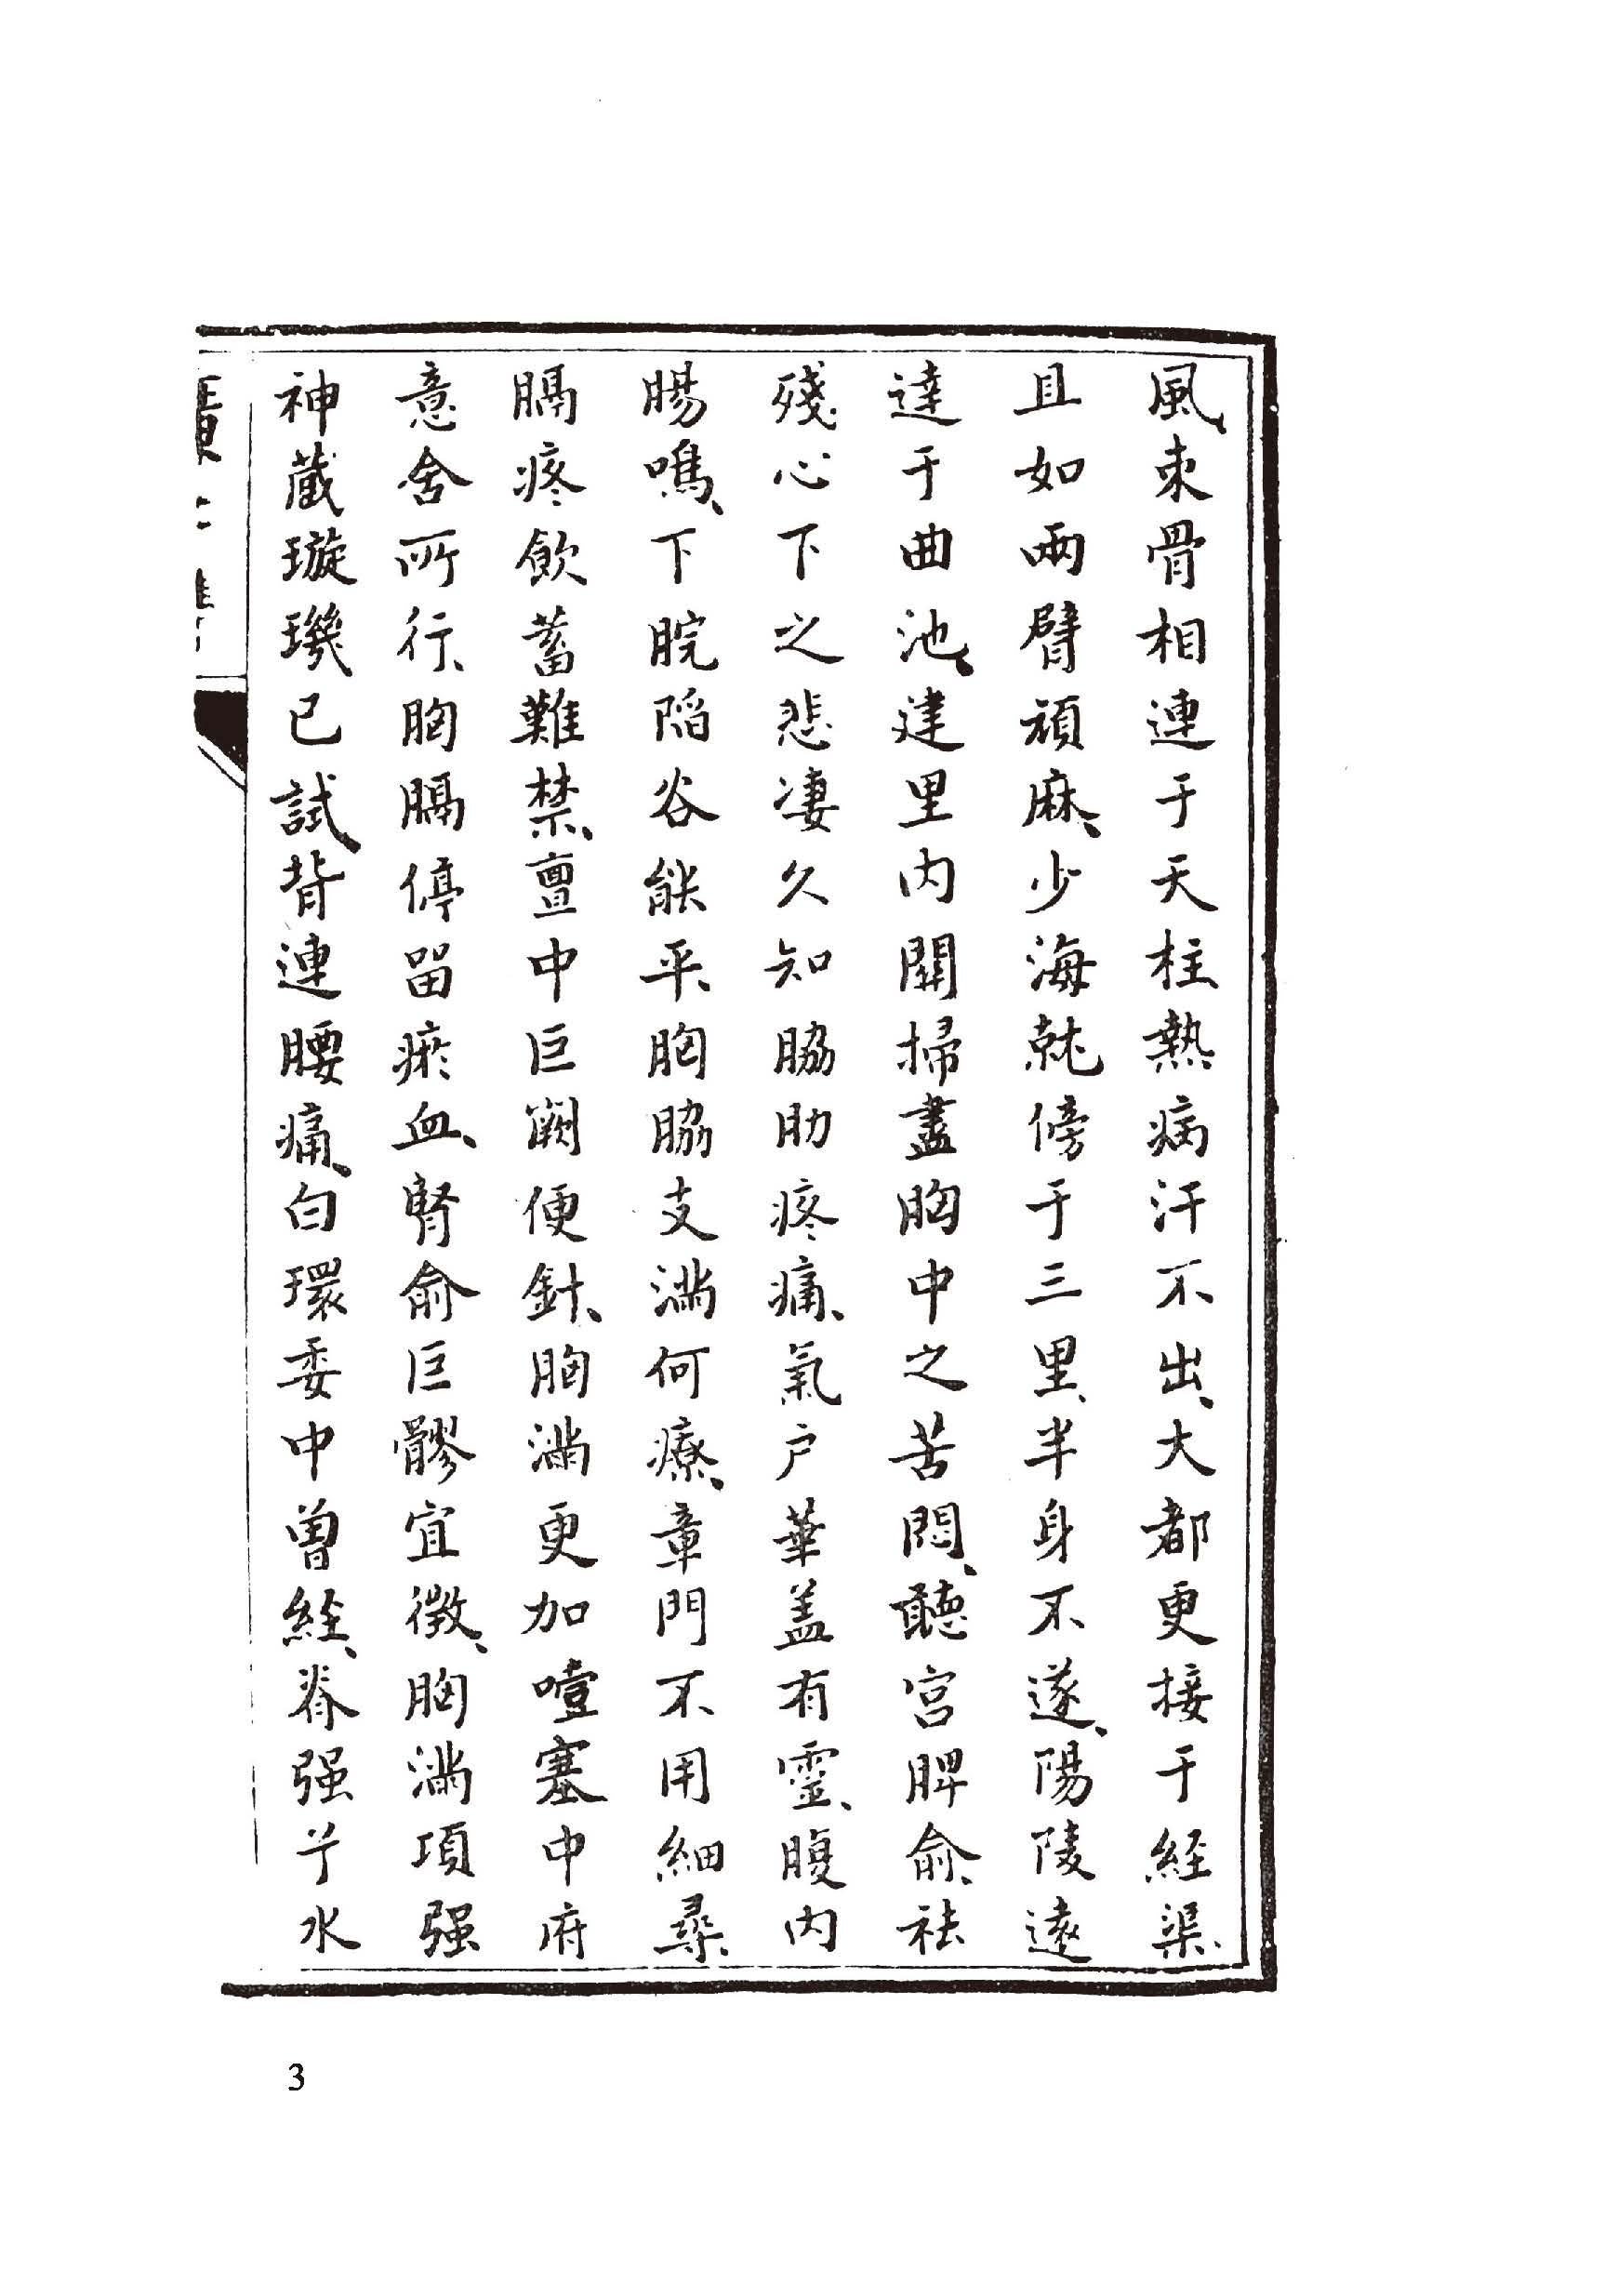 風、束骨相連于天柱熱病汗不出、大都更接于經渠、
且如兩臂頑麻、少海就傍于三里、半身不遂、陽陵遠
達于曲池、建里内關掃盡胸中之苦悶、聽宫脾俞、祛
殘心下之悲凄久知脇肋疼痛、氣户華盖有靈、腹内
腸鳴、下脘陷谷能平、胸脇支滿何療、章門不用細尋、
膈疼飲蓄難禁、亶中巨闕便針、胸滿更加噎塞中府
意舍所行、胸膈停留瘀血、腎俞巨髎宜徵、胸滿項强
神蔵璇璣已試、背連腰痛、白環委中曾経、脊强兮水
3